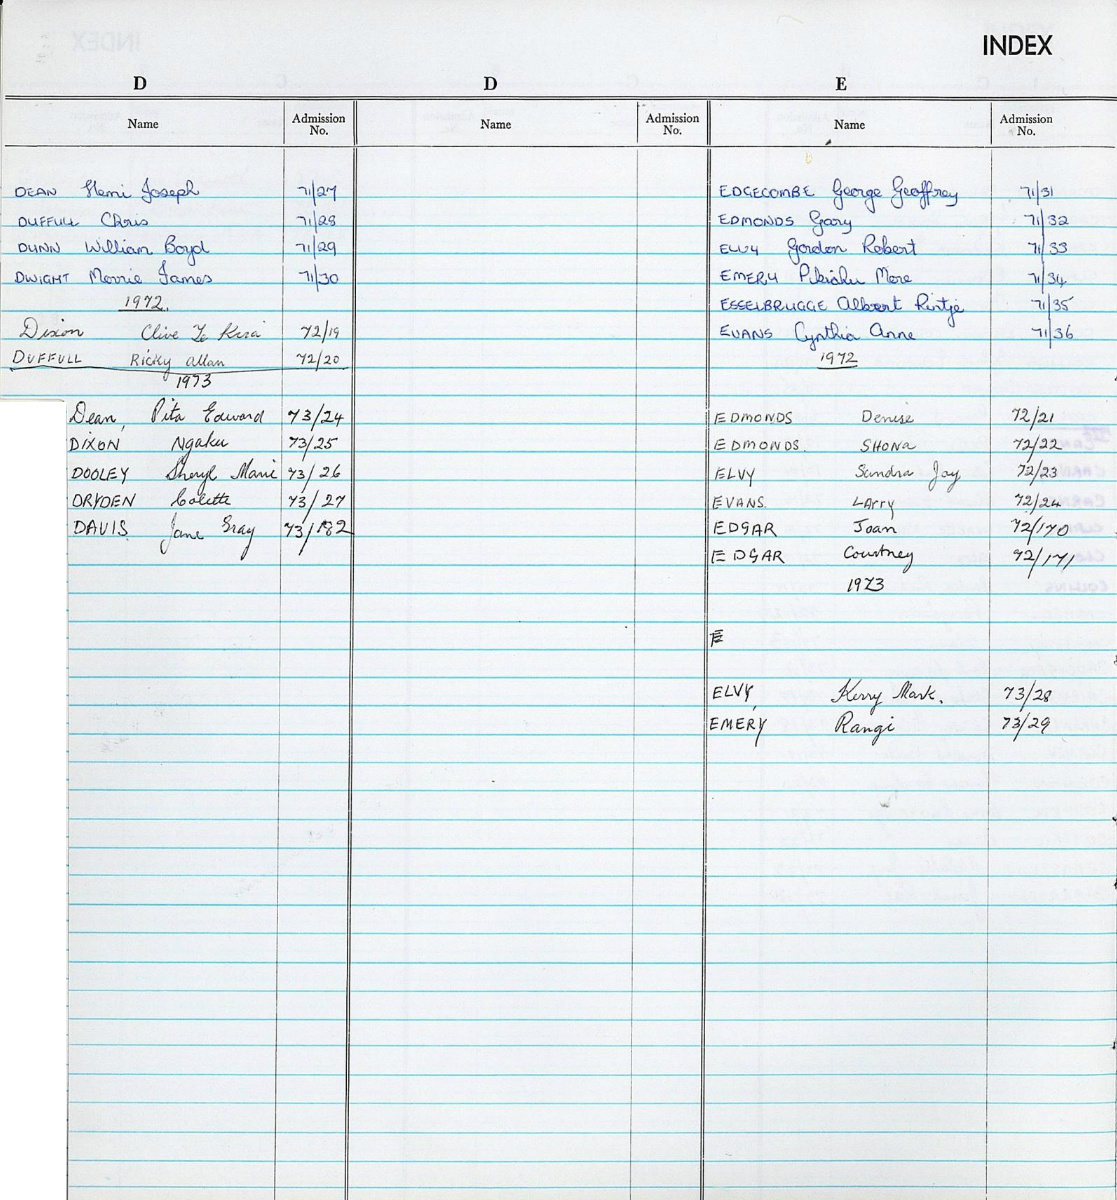 INDEX
D
Name Admission No.
DEAN Hemi Joseph 71/27
DUFFULL Chris 71/28
DUNN William Boyd 71/29
DWIGHT Morrie James 71/30
1972
Dixon Clive Te Kira 72/19
DUFFULL Ricky Allan 72/20
1973
Dean, Pita Edward 73/24
DIXON Ngaku 73/25
DOOLEY Sheryl Marie 73/26
DRYDEN Colette 73/27
DAVIS Jane Gray 73/182
D
Name Admission No.
E
Name Admission No.
EDGECOMBE George Geoffrey 71/31
EDMONDS Gary 71/32
ELVY Gordon Robert 71/33
EMERY Pikiahu Mere 71/34
ESSELBRUGGE Albert Rintje 71/35
EVANS Cynthia Anne 71/36
1972
EDMONDS Denise 72/21
EDMONDS. SHONA 72/22
ELVY Sandra Joy 72/23
EVANS. LArry 72/24
EDGAR Joan 72/170
EDGAR Courtney 72/171
1973
E
ELVY, Kerry Mark. 73/28
EMERY Rangi 73/29